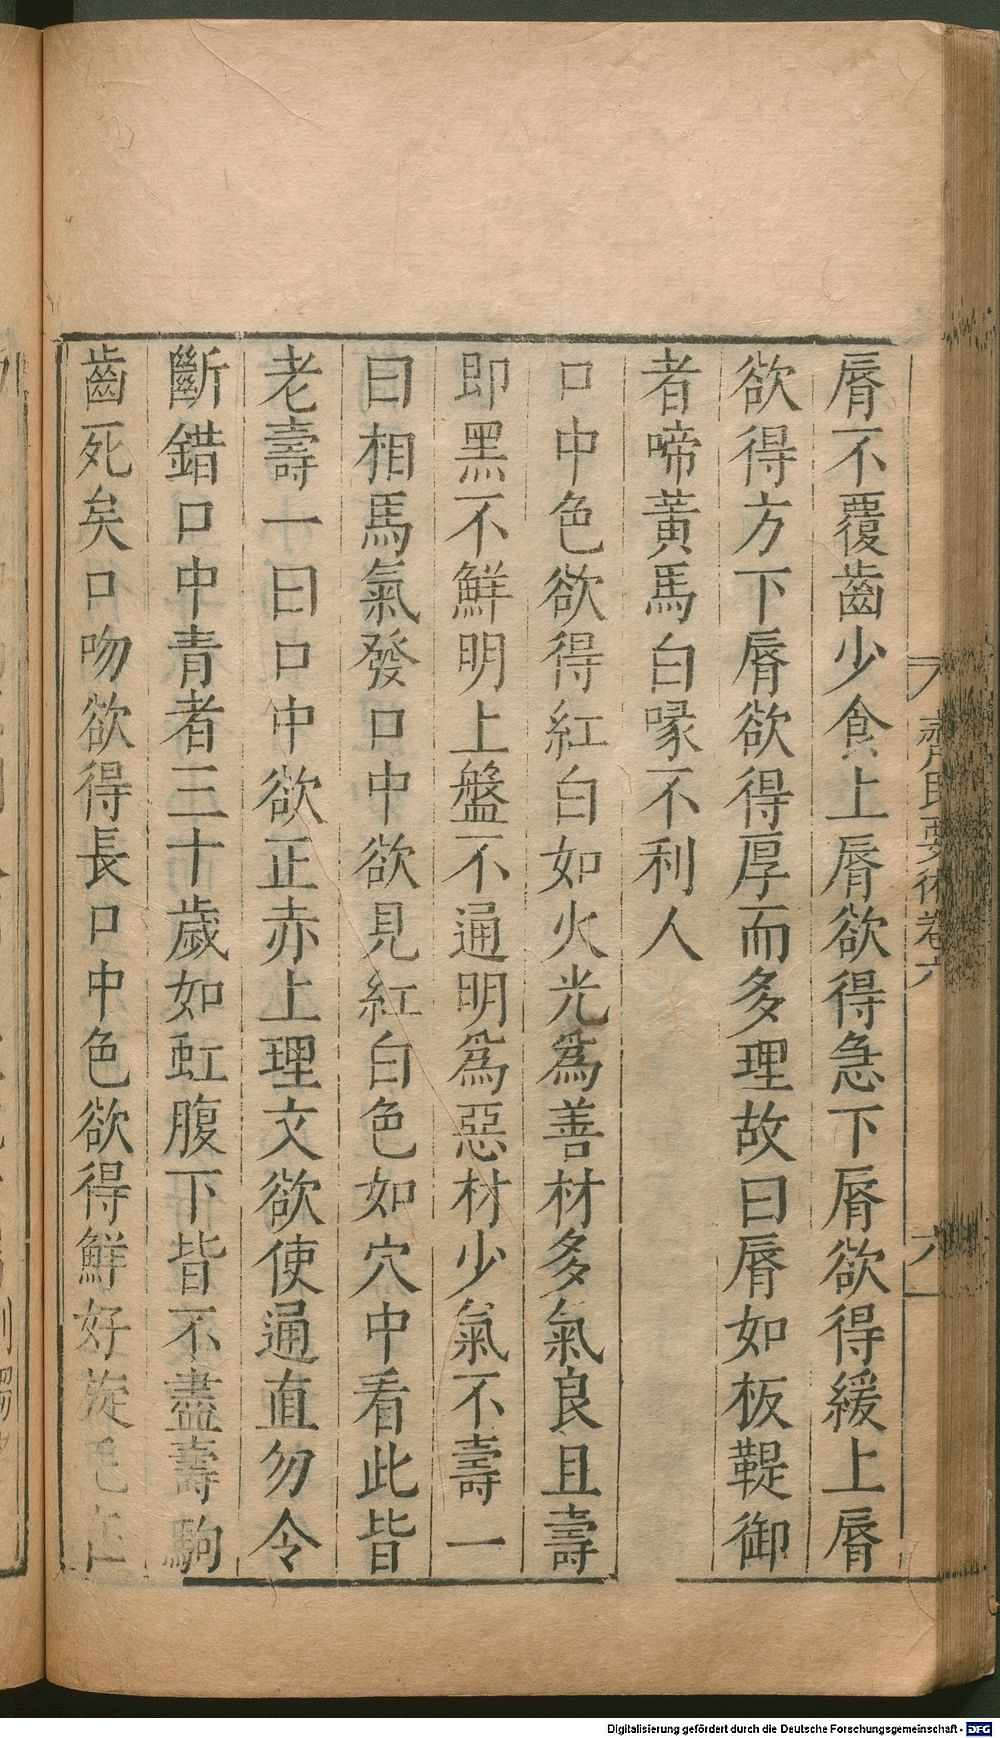 脣不覆齒少食上脣欲得急下脣欲得緩上脣
欲得方下脣欲得厚而多理故曰脣如板鞮御
者啼黃馬白喙不利人
口中色欲得紅白如火光爲善材多氣良且壽
即黑不鮮明上盤不通明爲惡材少氣不壽一
曰相馬氣發口中欲見紅白色如穴中看此皆
老壽一曰口中欲正赤上理文欲使通直勿令
斷錯口中青者三十歲如虹腹下皆不盡壽駒
齒死矣口吻欲得長口中色欲得鮮好旋毛在
齊民要術卷六
六
Digitalisierung gefördert durch die Deutsche Forschungsgemeinschaft - DFG